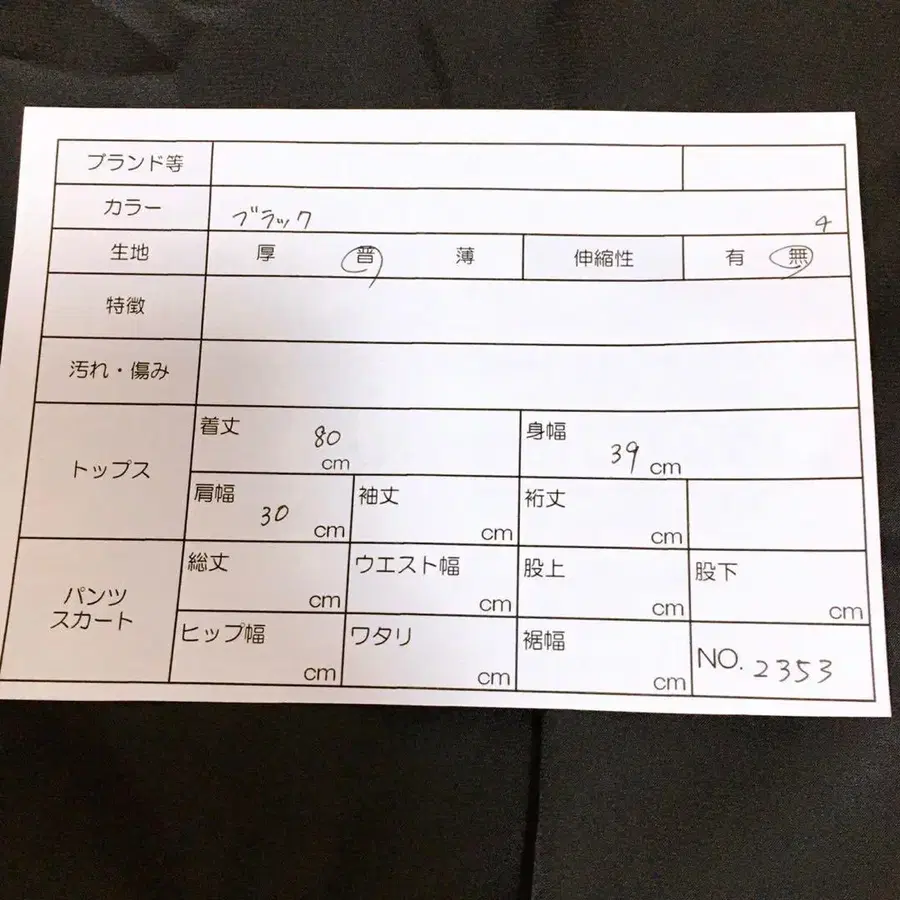 ブランド等
カラー ブラック 4
生地 厚 普 薄 伸縮性 有 無
特徴
汚れ・傷み
トップス
着丈 80 cm 身幅 39 cm
肩幅 30 cm 袖丈 cm 裄丈 cm
パンツ
スカート
総丈 cm ウエスト幅 cm 股上 cm 股下 cm
ヒップ幅 cm ワタリ cm 裾幅 cm NO. 2353